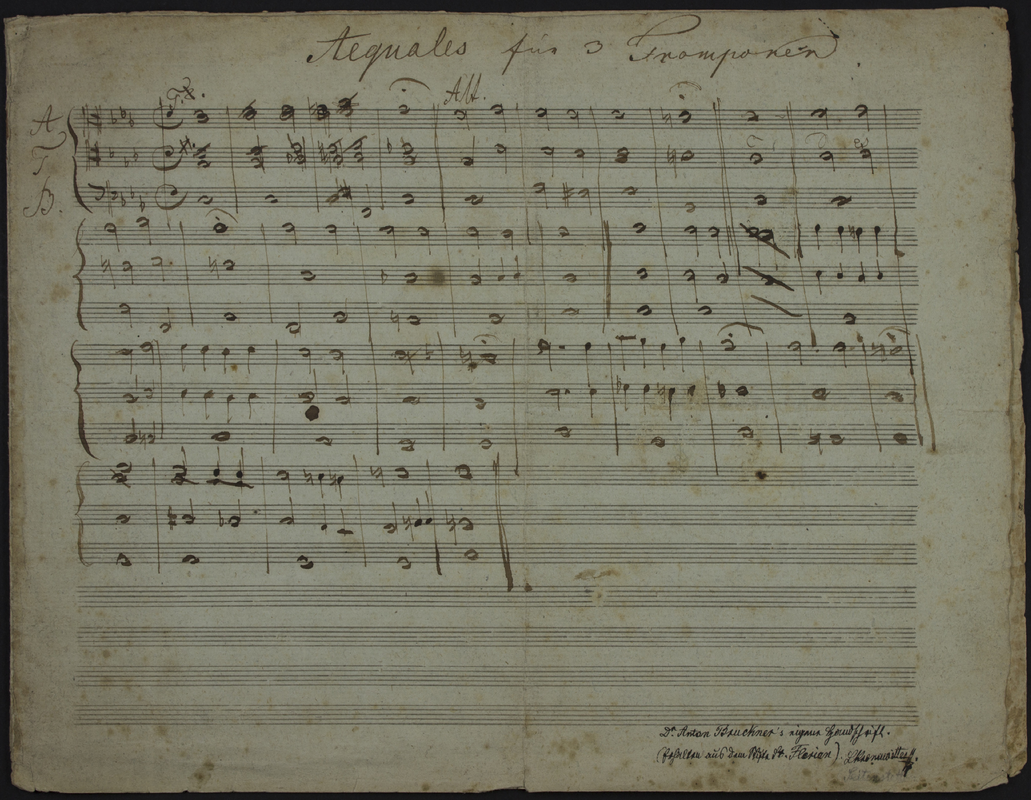 Aequales für 3 Tromponen
Alt.
A
T
B.
Dr Anton Bruckner's eigene Handschrift.
(Erhalten aus dem Stifte St. Florian).